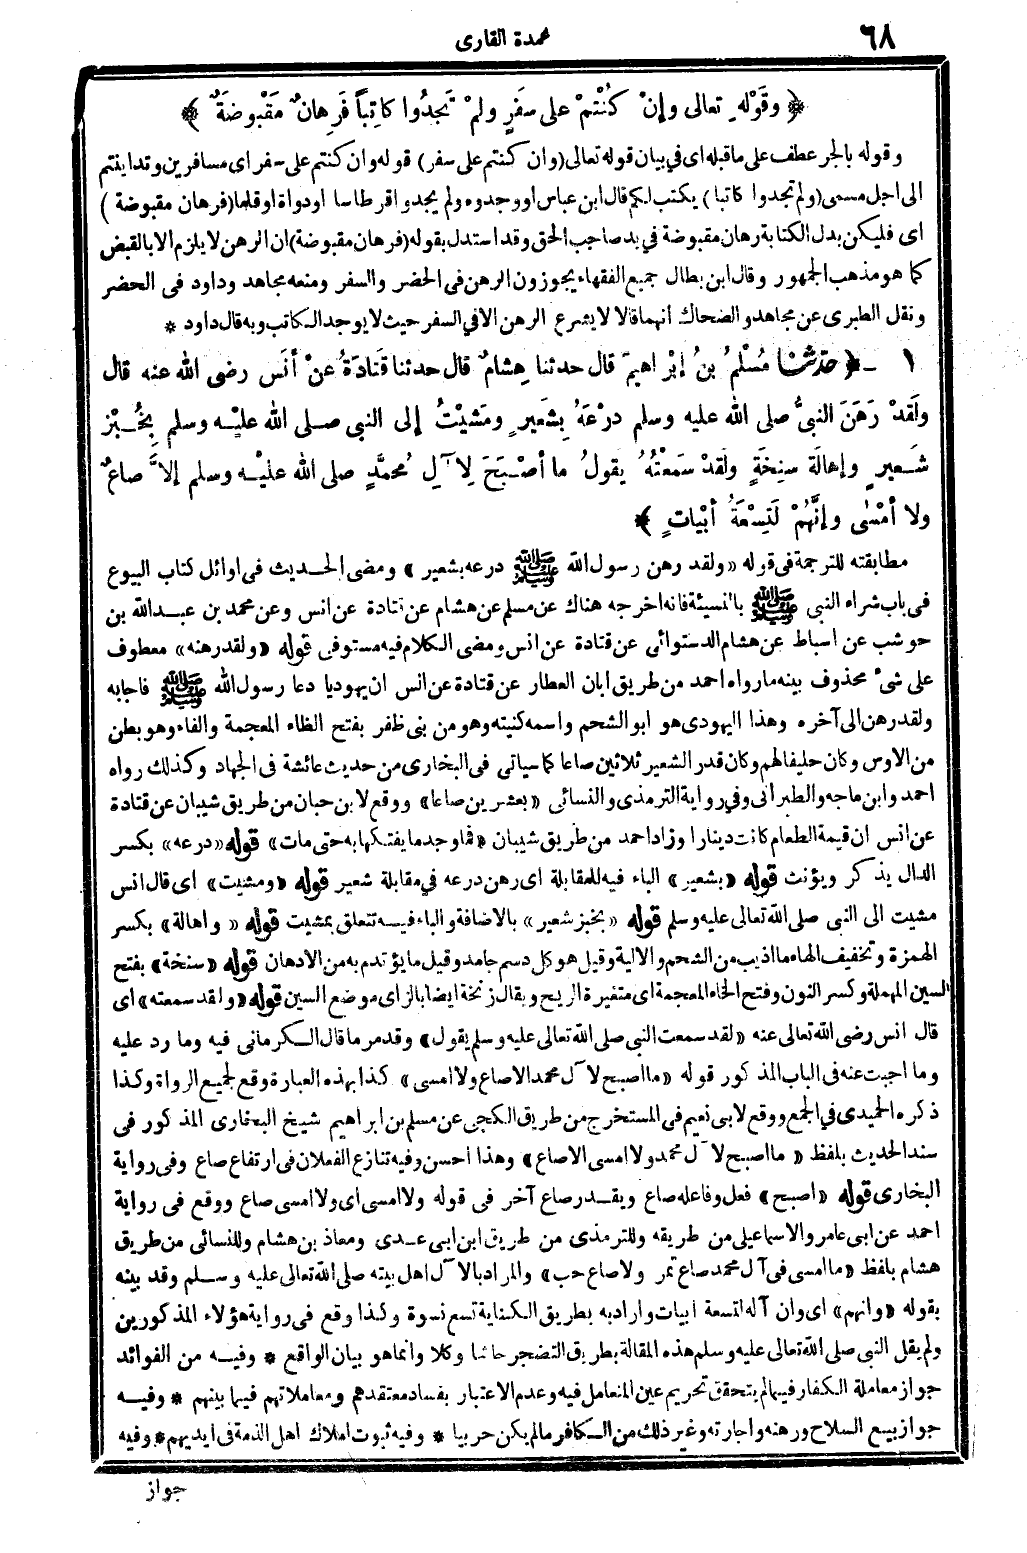 ٦٨
عمدة القارى
﴿ وقَوْلِهِ تعالى وإنْ كُنْتُمْ على سفَرٍ ولَمْ تَجِدُوا كاتِباً فَرِهانٌ مَقْبُوضَةٌ ﴾
وقوله بالجر عطف على ما قبله اى في بيان قوله تعالى (وان كنتم على سفر) قوله وان كنتم على سفر اى مسافرين وتداينتم
الى اجل مسمى (ولم تجدوا كاتبا) يكتب لكم قال ابن عباس او وجدوه ولم يجدوا قرطاسا او دواة او قلما (فرهان مقبوضة)
اى فليكن بدل الكتابة رهان مقبوضة في يد صاحب الحق وقد استدل بقوله (فرهان مقبوضة) ان الرهن لا يلزم الا بالقبض
كما هو مذهب الجمهور وقال ابن بطال جميع الفقهاء يجوزون الرهن فى الحضر والسفر ومنعه مجاهد وداود فى الحضر
ونقل الطبرى عن مجاهد والضحاك أنهما قالا لا يشرع الرهن الا في السفر حيث لا يوجد الكاتب وبه قال داود *
١ - ﴿ حَدَّثَنَا مُسْلِمُ بنُ إبْراهِيمَ قال حدثنا هِشامٌ قال حدثنا قَتادَةُ عنْ أنَسٍ رضى الله عنه قال
ولَقَدْ رَهَنَ النبىُّ صلى الله عليه وسلم دِرْعَهُ بِشَعِيرٍ ومَشَيْتُ إلى النبى صلى الله عليْه وسلم بِخُبْزِ
شَعِيرٍ وإهالَةٍ سنِخَةٍ ولَقَدْ سَمِعْتُهُ يقولُ ما أصْبَحَ لِآلِ مُحمَّدٍ صلى الله عليْه وسلم إلاَّ صاعٌ
ولا أمْسٰى وإنَّهُمْ لَتِسْعَةُ أبْيات ﴾
مطابقته للترجمة فى قوله «ولقد رهن رسول الله ﷺ درعه بشعير» ومضى الحديث فى اوائل كتاب البيوع
فى باب شراء النبى ﷺ بالنسيئة فانه اخرجه هناك عن مسلم عن هشام عن قتادة عن انس وعن محمد بن عبدالله بن
حوشب عن اسباط عن هشام الدستوائى عن قتادة عن انس ومضى الكلام فيه مستوفى قوله «ولقد رهنه» معطوف
على شىء محذوف بينه ما رواه احمد من طريق ابان العطار عن قتادة عن انس ان يهوديا دعا رسول الله ﷺ فاجابه
ولقد رهن الى آخره وهذا اليهودى هو ابو الشحم واسمه كنيته وهو من بنى ظفر بفتح الظاء المعجمة والفاء وهو بطن
من الاوس وكان حليفا لهم وكان قدر الشعير ثلاثين صاعا كما سياتى فى البخارى من حديث عائشة فى الجهاد وكذلك رواه
احمد وابن ماجه والطبرانى وفي رواية الترمذى والنسائى «بعشرين صاعا» ووقع لابن حبان من طريق شيبان عن قتادة
عن انس ان قيمة الطعام كانت دينارا وزاد احمد من طريق شيبان «فما وجد ما يفتكها به حتى مات» قوله «درعه» بكسر
الدال يذكر ويؤنث قوله «بشعير» الباء فيه للمقابلة اى رهن درعه في مقابلة شعير قوله «ومشيت» اى قال انس
مشيت الى النبى صلى الله تعالى عليه وسلم قوله «بخبز شعير» بالاضافة والباء فيه تتعلق بمشيت قوله «واهالة» بكسر
الهمزة وتخفيف الهاء ما اذيب من الشحم والالية وقيل هو كل دسم جامد وقيل ما يؤتدم به من الادهان قوله «سنخة» بفتح
السين المهملة وكسر النون وفتح الخاء المعجمة اى متغيرة الريح ويقال زنخة ايضا بالزاى موضع السين قوله «ولقد سمعته» اى
قال انس رضى الله تعالى عنه «لقد سمعت النبى صلى الله تعالى عليه وسلم يقول» وقد مر ما قال الكرمانى فيه وما رد عليه
وما اجبت عنه فى الباب المذكور قوله «ما اصبح لآل محمد الا صاع ولا امسى» كذا بهذه العبارة وقع لجميع الرواة وكذا
ذكره الحميدى في الجمع ووقع لابى نعيم فى المستخرج من طريق الكجى عن مسلم بن ابراهيم شيخ البخارى المذكور فى
سند الحديث بلفظ «ما اصبح لآل محمد ولا امسى الا صاع» وهذا احسن وفيه تنازع الفعلان فى ارتفاع صاع وفى رواية
البخارى قوله «اصبح» فعل وفاعله صاع ويقدر صاع آخر فى قوله ولا امسى اى ولا امسى صاع ووقع فى رواية
احمد عن ابى عامر والاسماعيلى من طريقه وللترمذى من طريق ابن ابى عدى ومعاذ بن هشام وللنسائى من طريق
هشام بلفظ «ما امسى فى آل محمد صاع تمر ولا صاع حب» والمراد بالآل اهل بيته صلى الله تعالى عليه وسلم وقد بينه
بقوله «وانهم» اى وان آله لتسعة ابيات واراد به بطريق الكناية تسع نسوة وكذا وقع فى رواية هؤلاء المذكورين
ولم يقل النبى صلى الله تعالى عليه وسلم هذه المقالة بطريق التضجر حاشا وكلا وانما هو بيان الواقع * وفيه من الفوائد
جواز معاملة الكفار فيما لم يتحقق تحريم عين المتعامل فيه وعدم الاعتبار بفساد معتقدهم ومعاملاتهم فيما بينهم * وفيه
جواز بيع السلاح ورهنه واجارته وغير ذلك من الكافر ما لم يكن حربيا * وفيه ثبوت املاك اهل الذمة فى ايديهم * وفيه
جواز